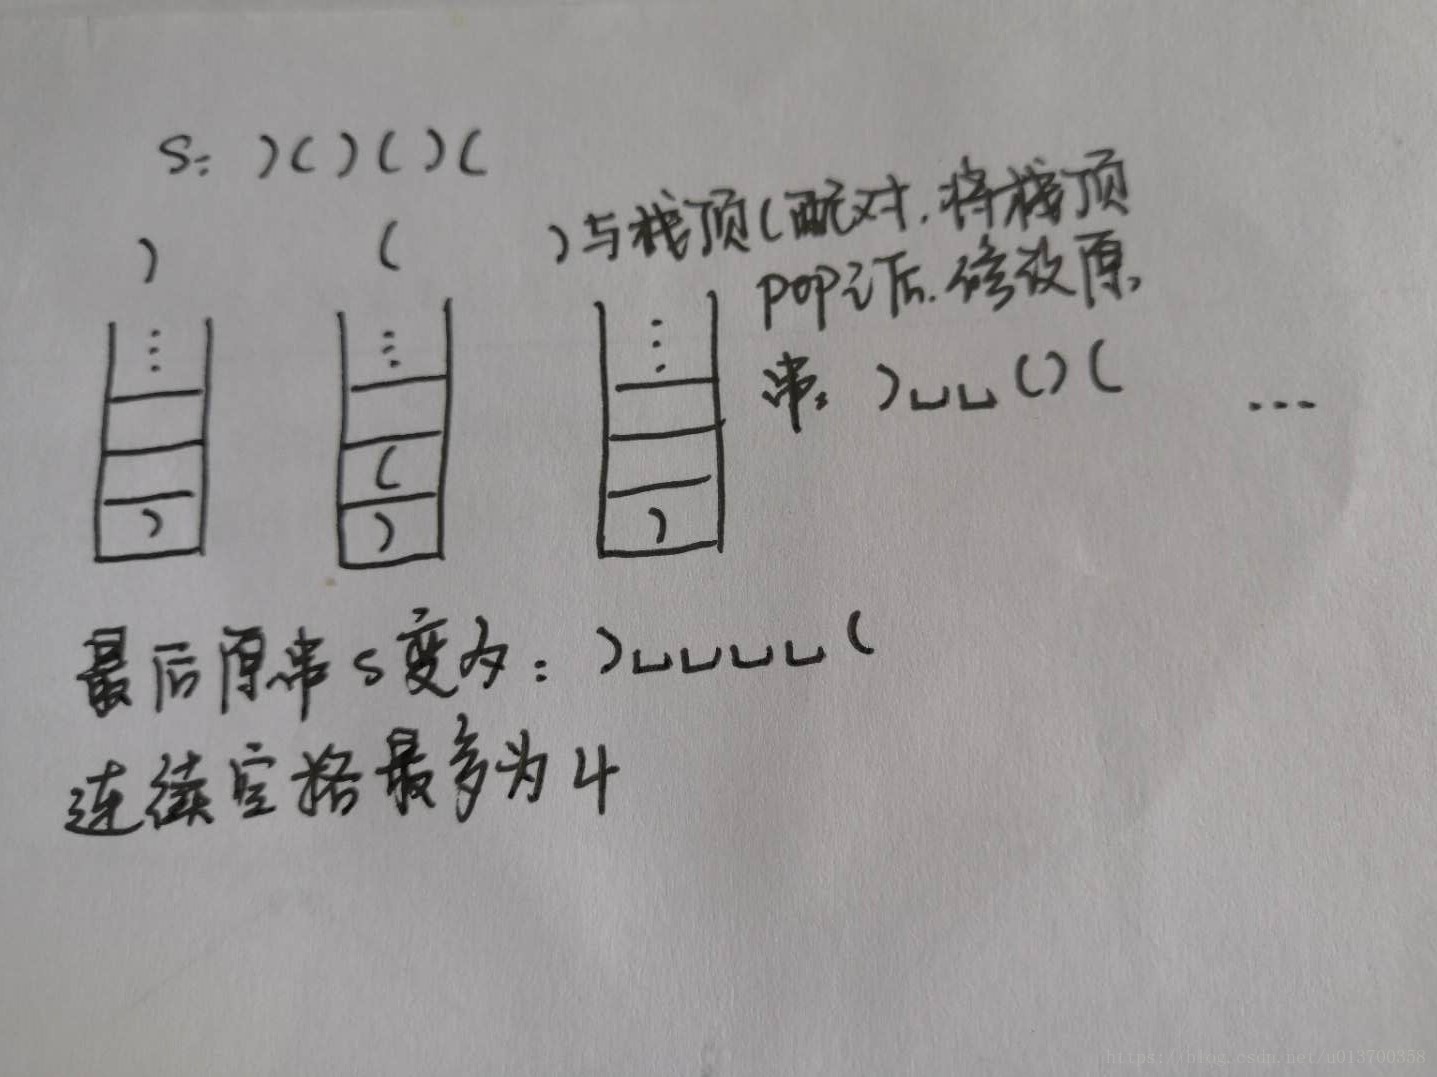 S: )()()(
)
(
)与栈顶(配对，将栈顶
pop之后，修改原
串，)␣␣()( ...
⋮ ⋮ ⋮
(
) ) )
最后原串s变为：)␣␣␣␣(
连续空格最多为4
https://blog.csdn.net/u013700358